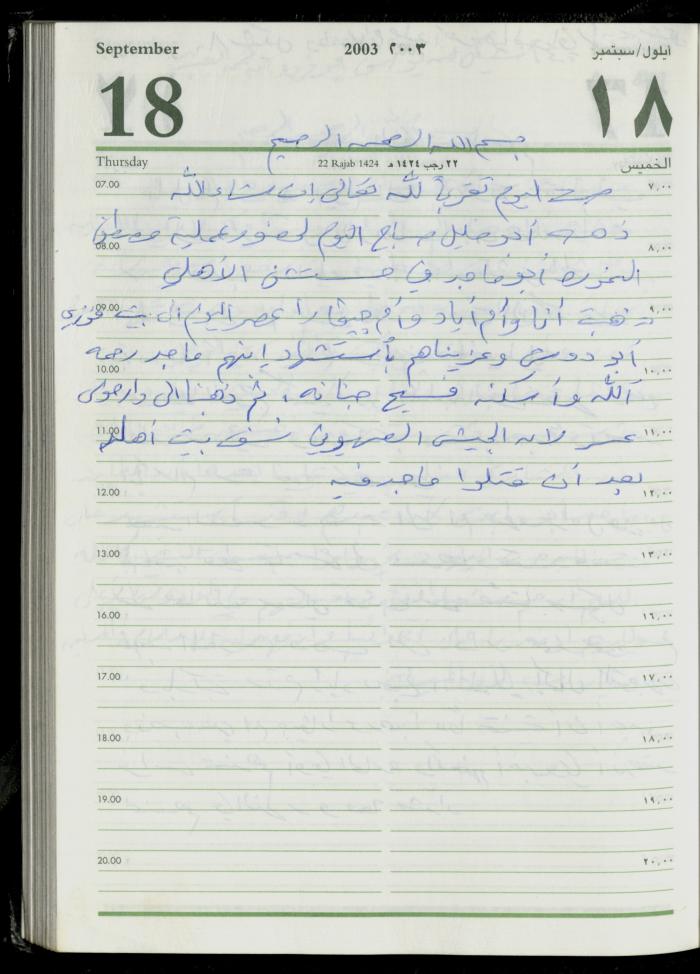 September 2003 ٢٠٠٣ أيلول/سبتمبر
18 ١٨
بسم الله الرحمن الرحيم
Thursday 22 Rajab 1424 ٢٢ رجب ١٤٢٤ هـ الخميس
07.00 ٧,٠٠
اليوم تقرباً لله تعالى إن شاء الله
ذهب أبو خليل صباح اليوم لحضور عملية مصطفى
08.00 ٨,٠٠
أبو ماجد في مستشفى الأهلي
09.00 ٩,٠٠
ذهبت أنا وأم أياد وأم جيفارا عصر اليوم إلى بيت فوزي
أبو دوش وعزيناهم بأستشهاد إبنهم ماجد رحمه
10.00 ١٠,٠٠
الله وأسكنه فسيح جنانه، ثم ذهبنا إلى دار
11.00 ١١,٠٠
لأن الجيش الصهيوني نسف بيت أهله
بعد أن قتلوا ماجد فيه
12.00 ١٢,٠٠
13.00 ١٣,٠٠
16.00 ١٦,٠٠
17.00 ١٧,٠٠
18.00 ١٨,٠٠
19.00 ١٩,٠٠
20.00 ٢٠,٠٠